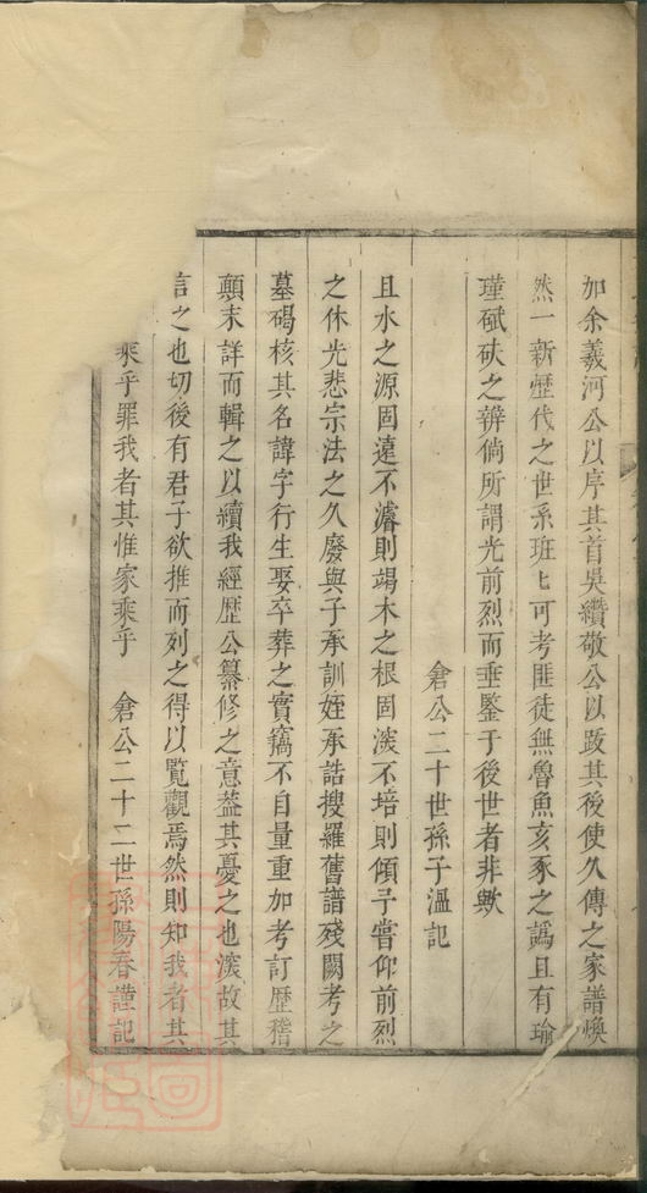 加余羲河公以序其首吳纘敬公以跋其後使久傳之家譜煥
然一新歷代之世系班匕可考匪徒無魯魚亥豕之譌且有瑜
瑾碔砆之辨倘所謂光前烈而垂鑒于後世者非歟
倉公二十世孫子溫記
且水之源固遠不濬則竭木之根固深不培則傾予嘗仰前烈
之休光悲宗法之久廢與子承訓姪承誥搜羅舊譜殘闕考之
墓碣核其名諱字行生娶卒葬之實竊不自量重加考訂歷稽
顛末詳而輯之以續我經歷公纂修之意葢其憂之也深故其
言之也切後有君子欲推而列之得以覽觀焉然則知我者其
乘乎罪我者其惟家乘乎 倉公二十二世孫陽春謹記